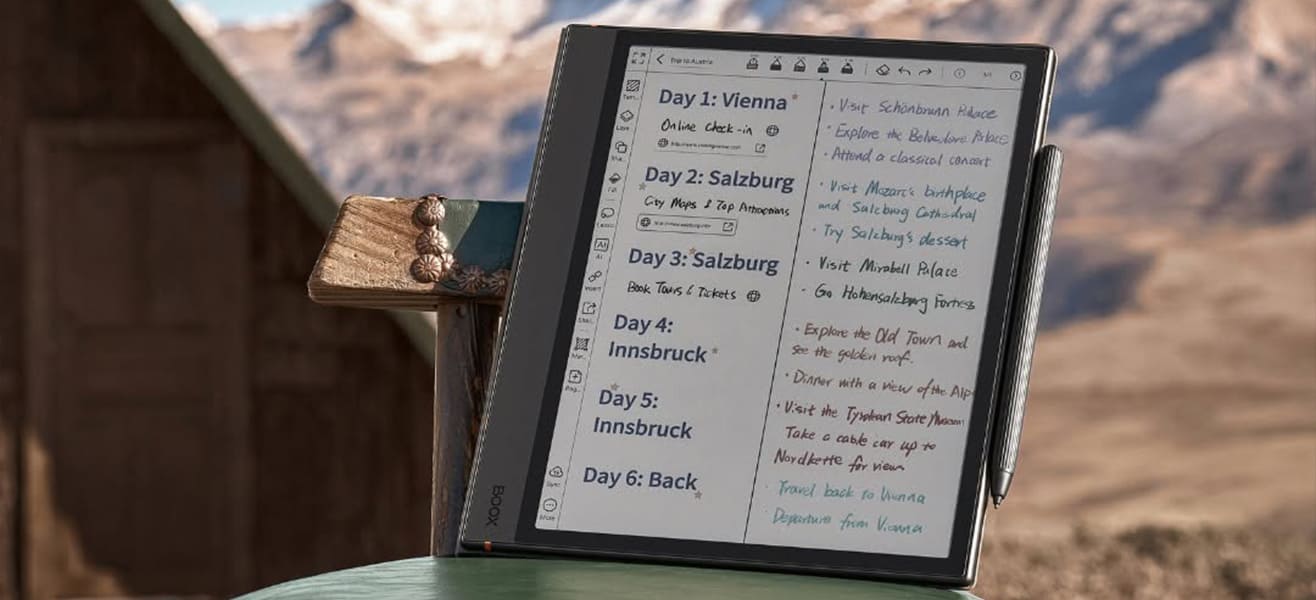 Trip to Austria
Day 1: Vienna
Online Check-in
Day 2: Salzburg
City Maps & Top Attractions
Day 3: Salzburg
Book Tours & Tickets
Day 4:
Innsbruck
Day 5:
Innsbruck
Day 6: Back
• Visit Schönbrunn Palace
• Explore the Belvedere Palace
• Attend a classical concert
• Visit Mozart's birthplace
and Salzburg Cathedral
• Try Salzburg's dessert
• Visit Mirabell Palace
• Go Hohensalzburg Fortress
• Explore the Old Town and
see the golden roof.
• Dinner with a view of the Alp
• Visit the Tyrolean State Museum
Take a cable car up to
Nordkette for view
Travel back to Vienna
Departure from Vienna
AI
Insert
Sync
More
BOOX